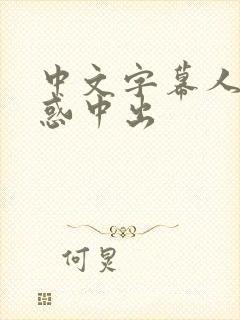 中文字幕人
惑中出
何炅